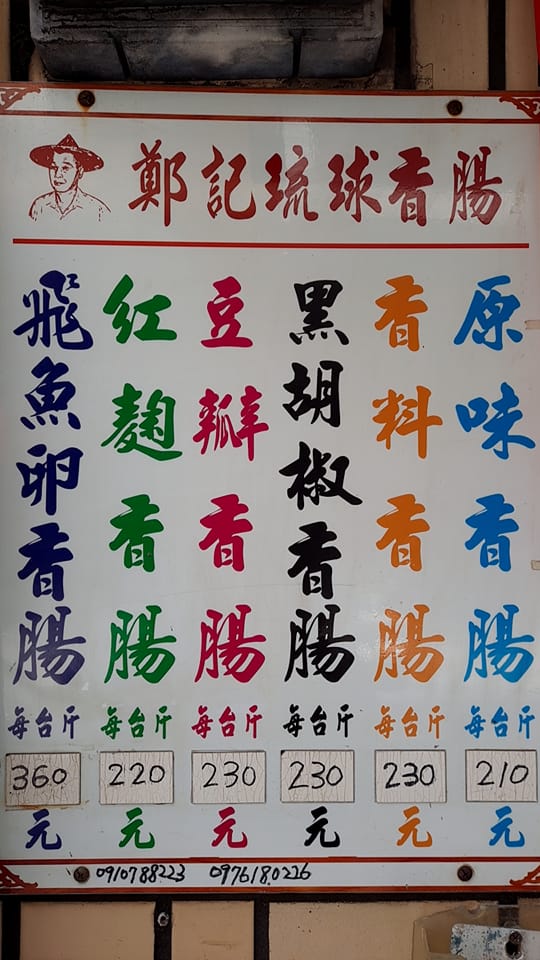 鄭記琉球香腸
原味香腸
每台斤
210
元
香料香腸
每台斤
230
元
黑胡椒香腸
每台斤
230
元
豆瓣香腸
每台斤
230
元
紅麴香腸
每台斤
220
元
飛魚卵香腸
每台斤
360
元
0910788223 0976180226